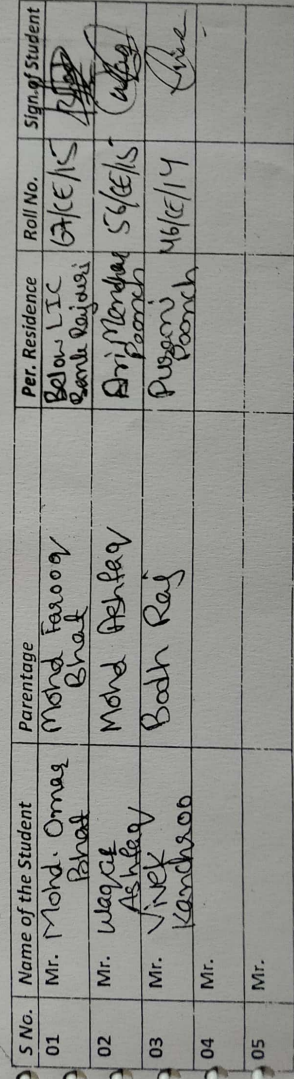 S No. Name of the Student Parentage Per. Residence Roll No. Sign. of Student
01 Mr. Mohd. Omar Bhat Mohd Farooq Bhat Below LIC Bank Rajouri 67/CE/15
02 Mr. Waqar Ashfaq Mohd Ashfaq Ari Mendhar Poonch 56/CE/15
03 Mr. Vivek Kanchroo Bodh Raj Purani Poonch 46/CE/14
04 Mr.
05 Mr.